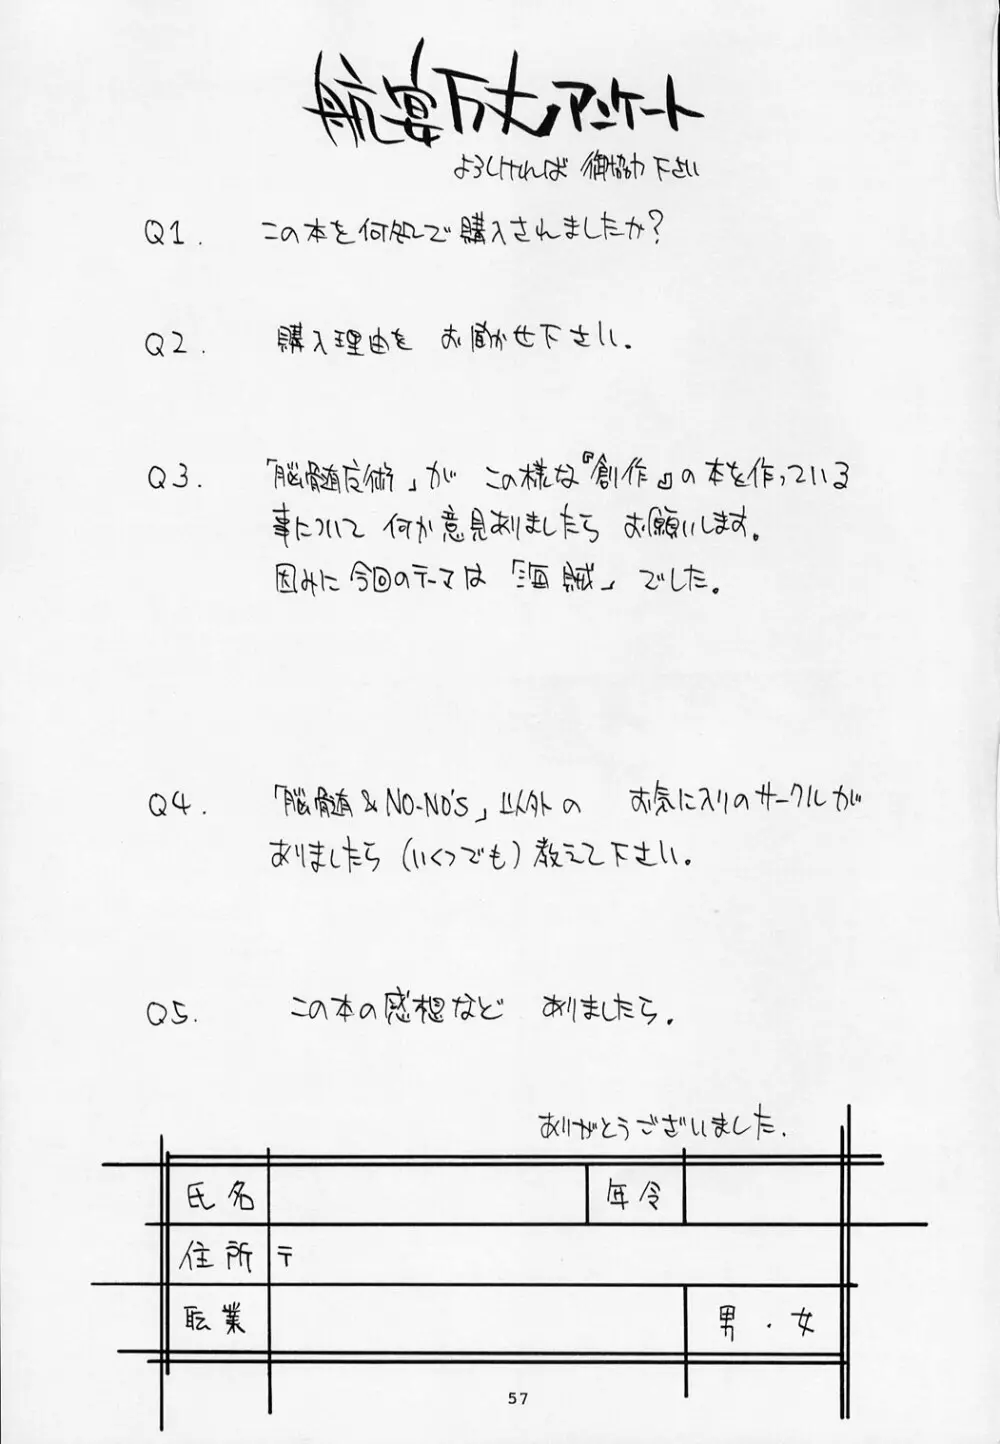 航宴万丈アンケート
よろしければ 御協力 下さい
Q1. この本を何処で購入されましたか?
Q2. 購入理由を お聞かせ下さい。
Q3. 「脳髄応術」が この様な『創作』の本を作っている
事について 何か意見ありましたら お願いします。
因みに今回のテーマは「海賊」でした。
Q4. 「脳髄&NO-NO'S」以外の お気に入りのサークルが
ありましたら(いくつでも)教えて下さい。
Q5. この本の感想など ありましたら。
ありがとうございました.
氏名 年令
住所 〒
職業 男・女
57